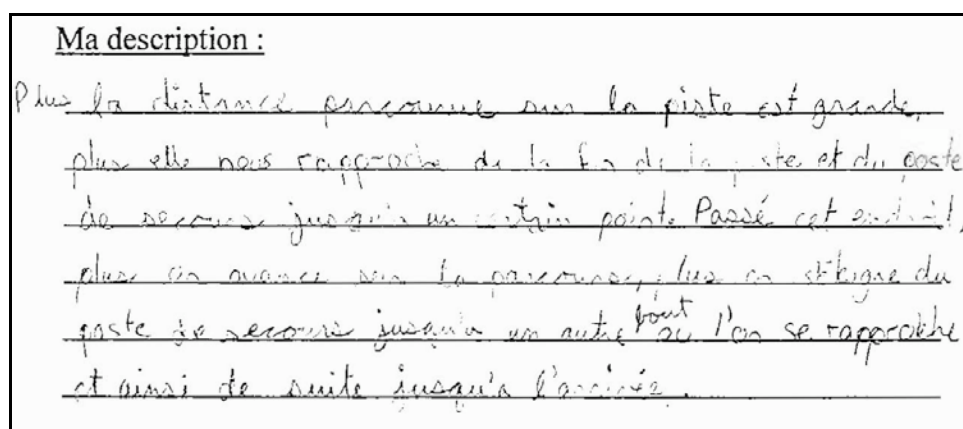 Ma description :
Plus la distance parcourue sur la piste est grande,
plus elle nous rapproche de la fin de la piste et du poste
de secours jusqu'à un certain pointe Passé cet endroit,
plus on avance sur la parcourse, plus on s'éloigne du
poste de secours jusqu'à un autre bout où l'on se rapproche
et ainsi de suite jusqu'à l'arrivée.